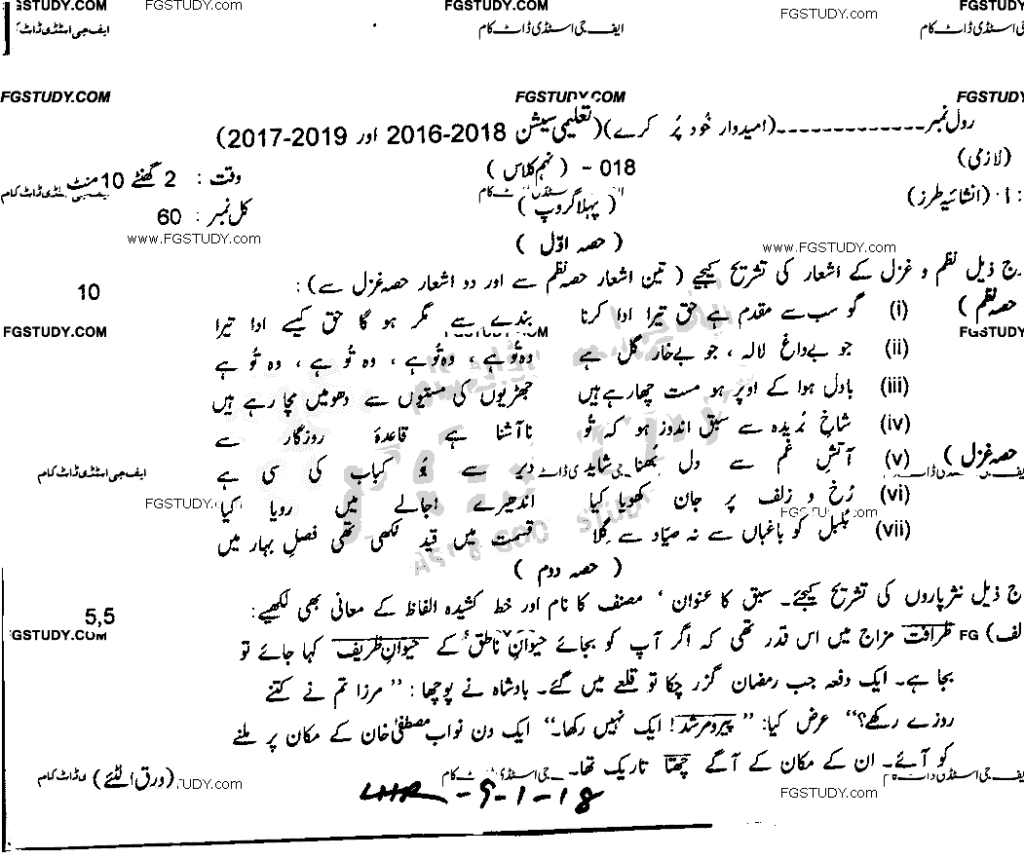 GSTUDY.COM FGSTUDY.com FGSTUDY.COM FGSTUDY.com FGSTUDY
ایف جی اسٹڈی ڈاٹ ایف جی اسٹڈی ڈاٹ کام ئی اسٹڈی ڈاٹ کام
FGSTUDY.COM FGSTUDY.COM FGSTUDY
رول نمبر-------------(امیدوار خُود پُر کرے)(تعلیمی سیشن 2018-2016 اور 2019-2017)
(لازمی) 018 - (نہم کلاس) وقت : 2 گھنٹے 10 منٹ
:ا٠ (انشائیہ طرز) (پہلا گروپ) کل نمبر : 60
www.FGSTUDY.com
( حصہ اوّل ) www.FGSTUDY.com
ج ذیل نظم و غزل کے اشعار کی تشریح کیجیے ( تین اشعار حصہ نظم سے اور دو اشعار حصہ غزل سے ) : 10
حصہ نظم ) (i) گو سب سے مقدم ہے حق تیرا ادا کرنا بندے سے مگر ہو گا حق کیسے ادا تیرا
FGSTUDY.COM FGSTUDY
(ii) جو بے داغِ لالہ ، جو بے خار گل ہے وہ تُو ہے ، وہ تُو ہے ، وہ تُو ہے ، وہ تُو ہے
(iii) بادل ہوا کے اوپر ہو مست چھا رہے ہیں جھڑیوں کی مستیوں سے دھومیں مچا رہے ہیں
(iv) شاخِ بُریدہ سے سبق اندوز ہو کہ تُو ناآشنا ہے قاعدۂ روزگار سے
حصہ غزل ) (v) آتشِ غم سے دل بُھنا شاید دیر سے بُو کباب کی سی ہے
ایف جی اسٹڈی ڈاٹ کام
(vi) رُخ و زلف پر جان کھویا کیا اندھیرے اجالے میں رویا کیا
(vii) بُلبل کو باغباں سے نہ صیّاد سے گلا قسمت میں قید لکھی تھی فصلِ بہار میں
( حصہ دوم )
ج ذیل نثرپاروں کی تشریح کیجئے۔ سبق کا عنوان ، مصنف کا نام اور خط کشیدہ الفاظ کے معانی بھی لکھیے: 5,5
لف) ظرافت مزاج میں اس قدر تھی کہ اگر آپ کو بجائے حیوانِ ناطق کے حیوانِ ظریف کہا جائے تو
بجا ہے۔ ایک دفعہ جب رمضان گزر چکا تو قلعے میں گئے۔ بادشاہ نے پوچھا : "مرزا تم نے کتنے
روزے رکھے؟" عرض کیا: "پیرومرشد! ایک نہیں رکھا۔" ایک دن نواب مصطفیٰ خان کے مکان پر ملنے
کو آئے۔ ان کے مکان کے آگے چھتا تاریک تھا۔ (ورق الٹئے)
LHR - 9-1-18 FGSTUDY.com